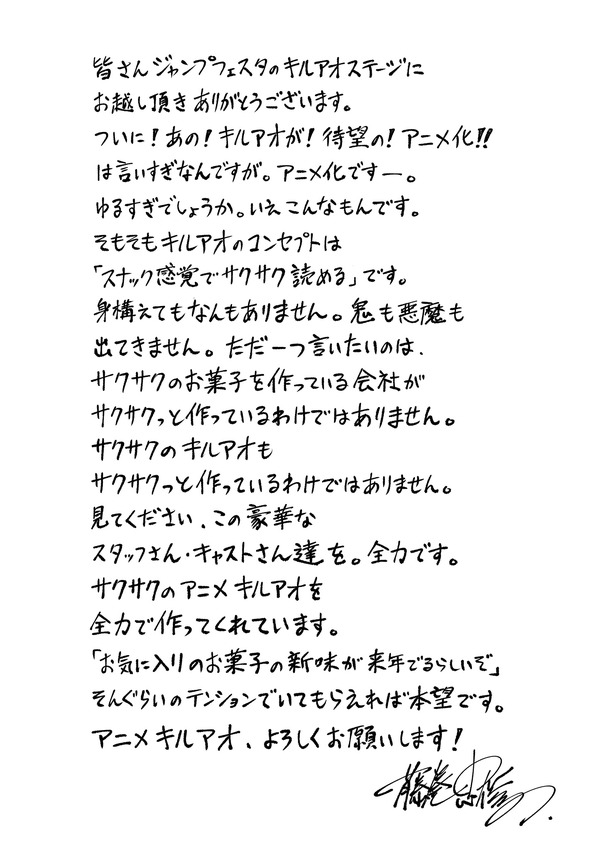 皆さんジャンプフェスタのキルアオステージに
お越し頂きありがとうございます。
ついに!あの!キルアオが!待望の!アニメ化!!
は言いすぎなんですが。アニメ化ですー。
ゆるすぎでしょうか。いえこんなもんです。
そもそもキルアオのコンセプトは
「スナック感覚でサクサク読める」です。
身構えてもなんもありません。鬼も悪魔も
出てきません。ただ一つ言いたいのは、
サクサクのお菓子を作っている会社が
サクサクっと作っているわけではありません。
サクサクのキルアオも
サクサクっと作っているわけではありません。
見てください、この豪華な
スタッフさん・キャストさん達を。全力です。
サクサクのアニメキルアオを
全力で作ってくれています。
「お気に入りのお菓子の新味が来年でるらしいぞ」
そんぐらいのテンションでいてもらえれば本望です。
アニメキルアオ、よろしくお願いします!
藤巻忠俊